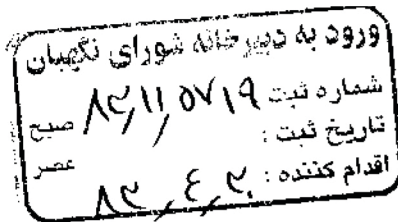 ورود به دبیرخانه شورای نگهبان
شماره ثبت ۸۳٫۱۱٫۵۷۱۹ صبح
تاریخ ثبت :
عصر
اقدام کننده :